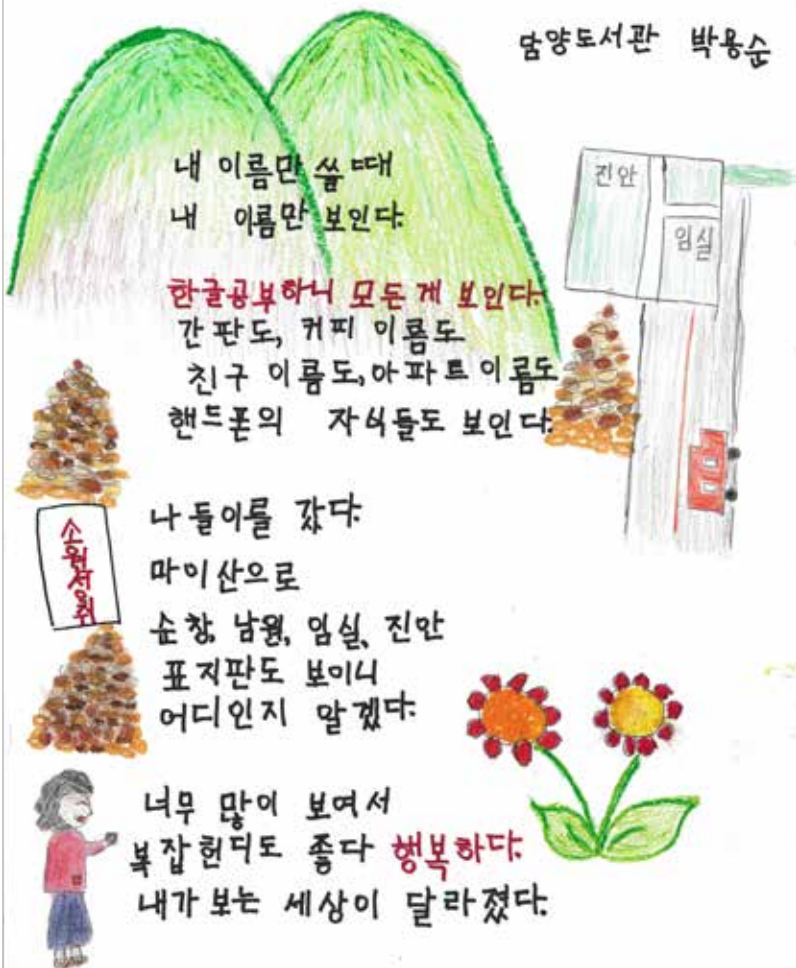 담양도서관 박용순
내 이름만 쓸때
내 이름만 보인다.
한글공부하니 모든게 보인다.
간판도, 커피 이름도
친구 이름도, 아파트 이름도
핸드폰의 자식들도 보인다.
나들이를 갔다.
마이산으로
순창, 남원, 임실, 진안
표지판도 보이니
어디인지 알겠다.
너무 많이 보여서
복잡헌디도 좋다 행복하다.
내가 보는 세상이 달라졌다.
진안
임실